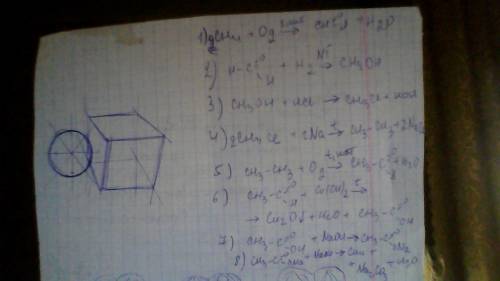 1) CH₄ + O₂ → + H₂O
2) H-C=O H + H₂ Ni→ CH₃OH
3) CH₃OH + HCl → CH₃Cl + HOH
4) 2CH₃Cl + 2Na → CH₃-CH₃ + 2NaCl
5) CH₃-CH₃ + O₂ t, kat→ CH₃-C=O H + H₂O
6) CH₃-C=O H + Cu(OH)₂ t→
→ Cu₂O↓ + H₂O + CH₃-C=O OH
7) CH₃-C=O OH + NaOH → CH₃-C=O
8) CH₃-C=O ONa + NaOH → CH₄ + Na₂CO₃